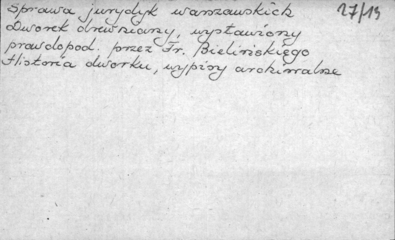 Sprawa jurydyk warszawskich 27/13
Dworek drewniany, wystawiony
prawdopod. przez Fr. Bielińskiego
Historia dworku, wypisy archiwalne